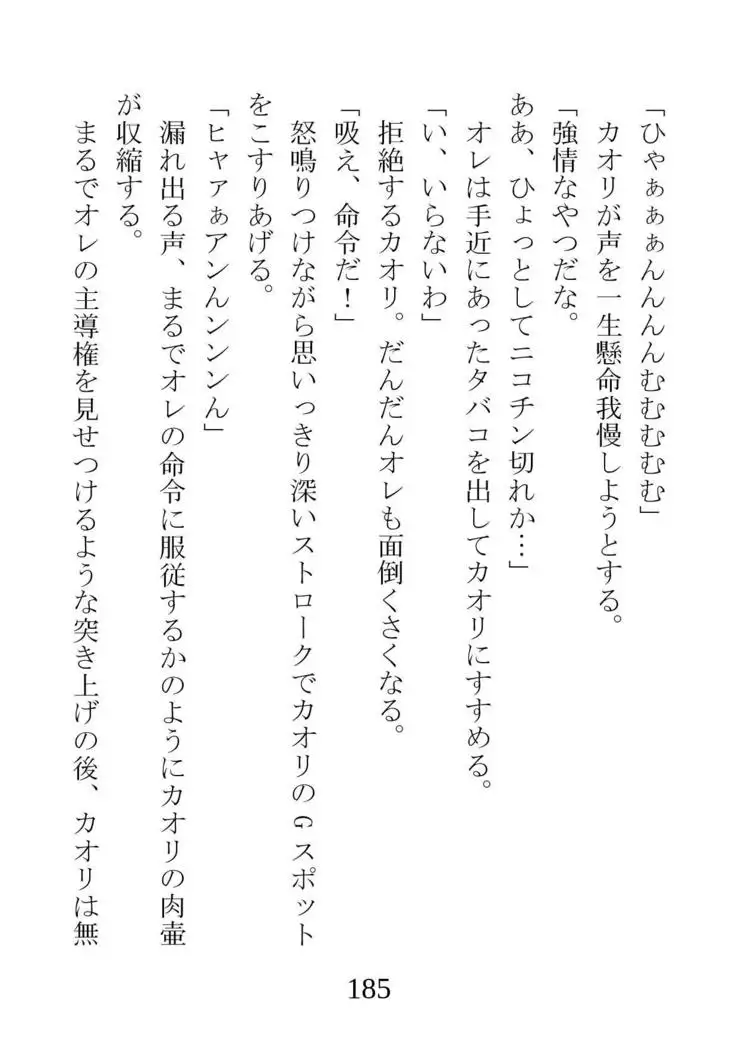 「ひゃぁぁぁんんんんむむむむむ」
　カオリが声を一生懸命我慢しようとする。
「強情なやつだな。
ああ、ひょっとしてニコチン切れか…」
　オレは手近にあったタバコを出してカオリにすすめる。
「い、いらないわ」
　拒絶するカオリ。だんだんオレも面倒くさくなる。
「吸え、命令だ！」
　怒鳴りつけながら思いっきり深いストロークでカオリのGスポット
をこすりあげる。
「ヒャアぁアンんンンンん」
　漏れ出る声、まるでオレの命令に服従するかのようにカオリの肉壷
が収縮する。
　まるでオレの主導権を見せつけるような突き上げの後、カオリは無
185